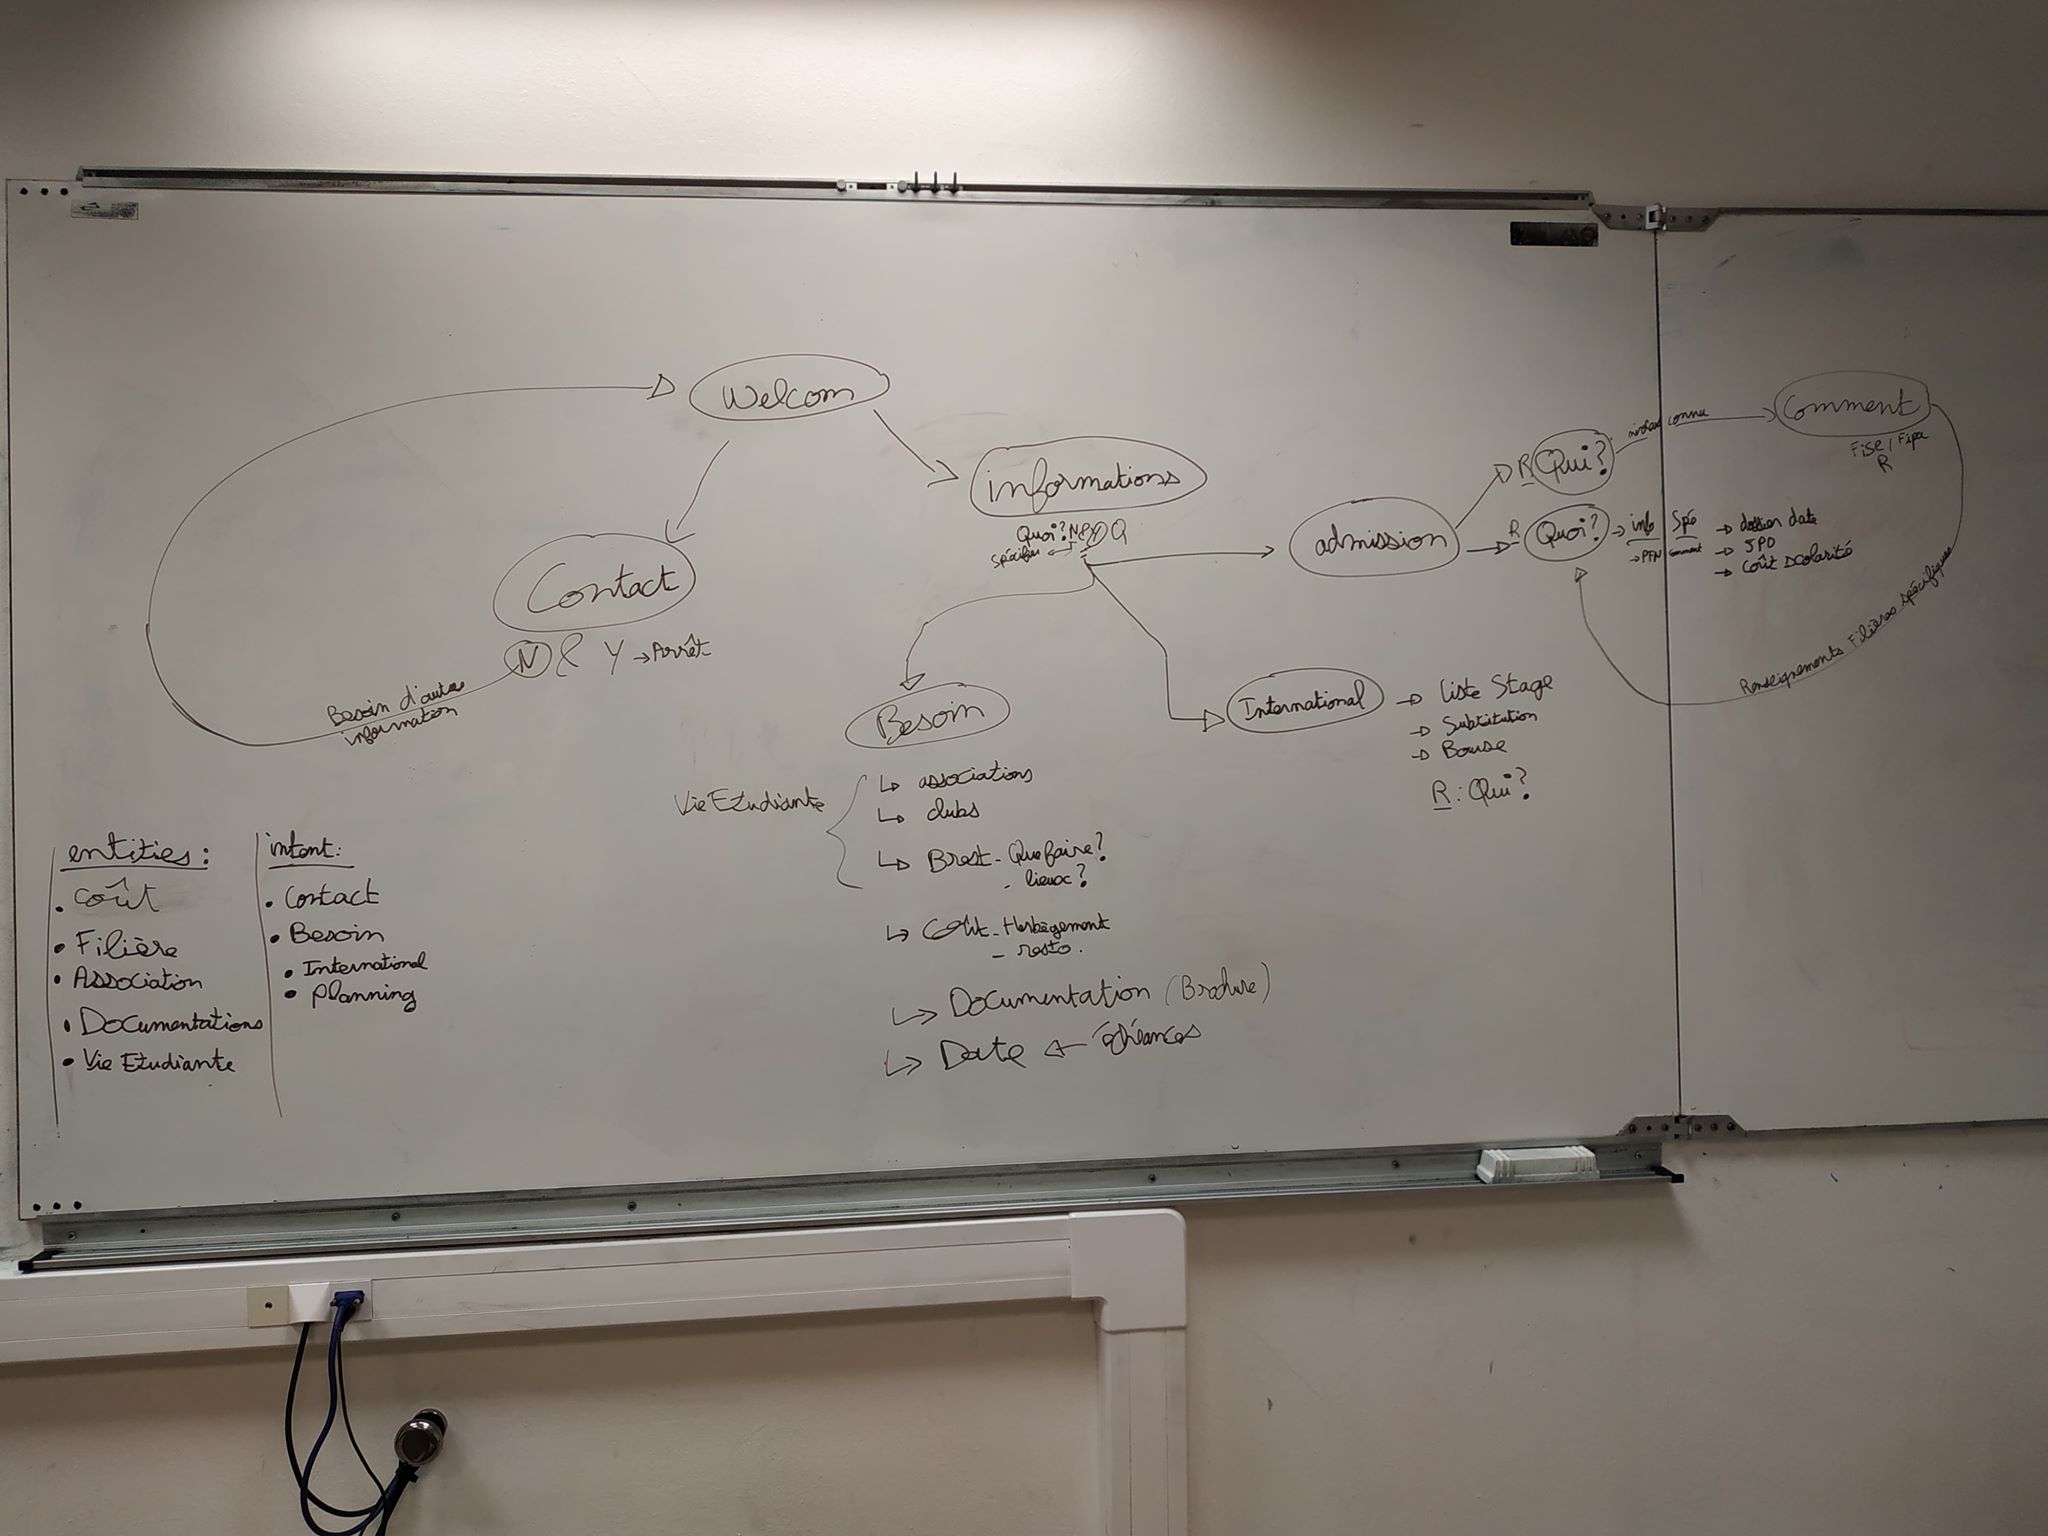 Welcom
informations
Quoi?
Contact
N & Y → Arrêt
Besoin d'autres
information
admission
R Qui?
niveau connu
Comment
Fise / Fipa
R
R Quoi?
→ info Spé
→ dossier date
→ JPO
→ coût scolarité
Renseignements Filières spécifiques
International
→ Liste Stage
→ Substitution
→ Bourse
R : Qui?
Besoin
Vie Etudiante
↳ associations
↳ clubs
↳ Brest - Que faire?
- lieux?
↳ Coût - Herbègement
- resto.
↳ Documentation (Brochure)
↳ Date ← échéances
entities :
• coût
• Filière
• Association
• Documentations
• Vie Etudiante
intent :
• Contact
• Besoin
• International
• Planning